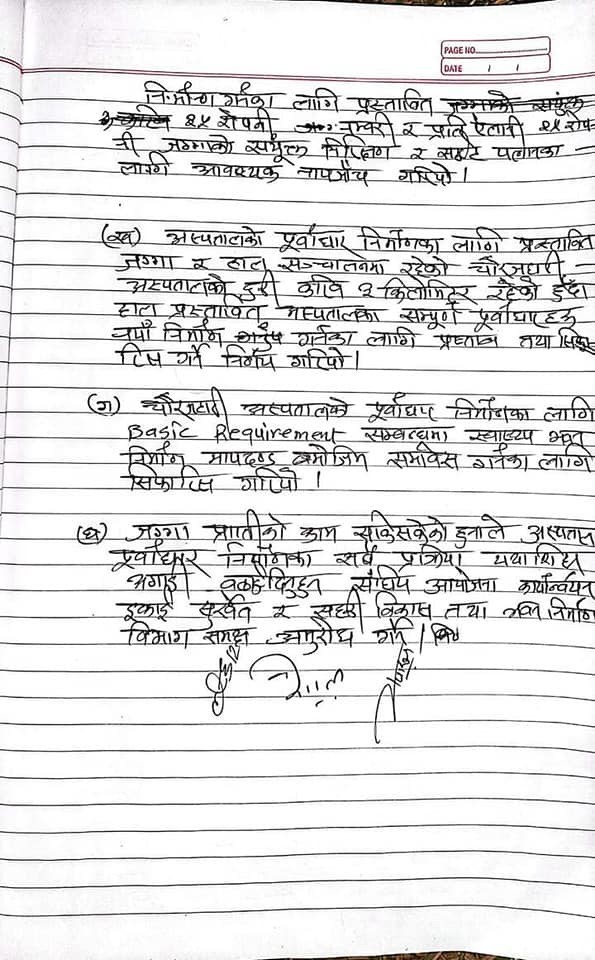 PAGE NO.
DATE / /
निर्माण गर्नका लागि प्रस्तावित जग्गाको संयुक्त
२५ रोपनी नम्बरी र प्रति ऐलानी २५ रोप-
नी जग्गाको संयुक्त निरिक्षण र सम्राट पलानका
लागि आवश्यक नापजाँच गरियो।
(ख) अस्पतालको पूर्वाधार निर्माणका लागि प्रस्तावित
जग्गा र हाल सञ्चालनमा रहेको चौरजहारी
अस्पतालको दुरी करिव २ किलोमिटर रहेको हुँदा
हाल प्रस्तावित अस्पतालका सम्पूर्ण पूर्वाधारहरु
नयाँ निर्माण गर्नका लागि प्रस्ताव तथा सिफा-
रिस गर्ने निर्णय गरियो।
(ग) चौरजहारी अस्पतालको पूर्वाधार निर्माणका लागि
Basic Requirement सम्बन्धमा स्वास्थ्य भवन
निर्माण मापदण्ड बमोजिम समावेस गर्नका लागि
सिफारिस गरियो।
(घ) जग्गा प्राप्तीको काम सकिसकेको हुनाले अस्पताल
पूर्वाधार निर्माणका सर्व प्रक्रिया यथाशिघ्र
अगाडी बढाइदिनुहुन संघिय आयोजना कार्यान्वयन
इकाई सुर्खेत र सहरी विकास तथा भवन निर्माण
विभाग समक्ष अनुरोध गर्ने।